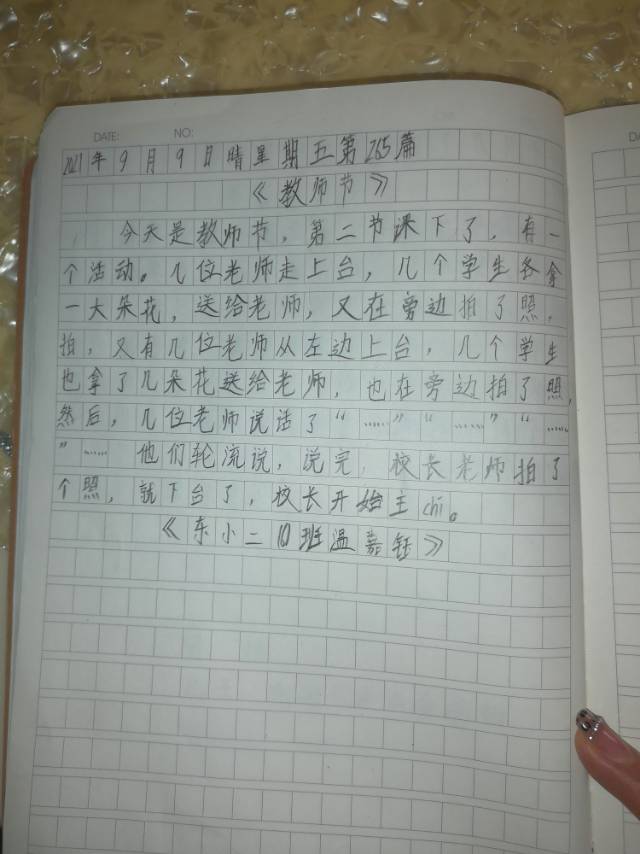 DATE: NO:
2021年9月9日晴星期五第265篇
《教师节》
今天是教师节，第二节课下了，有一
个活动。几位老师走上台，几个学生各拿
一大朵花，送给老师，又在旁边拍了照，
拍，又有几位老师从左边上台，几个学生
也拿了几朵花送给老师，也在旁边拍了照，
然后，几位老师说话了“……”“……”“……
”……他们轮流说，说完，校长老师拍了
个照，就下台了，校长开始主chi。
《东小二10班温嘉钰》